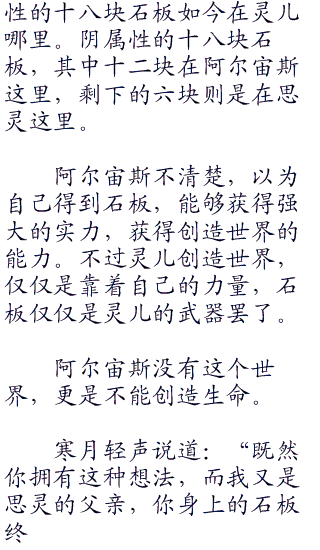 性的十八块石板如今在灵儿
哪里。阴属性的十八块石
板，其中十二块在阿尔宙斯
这里，剩下的六块则是在思
灵这里。
阿尔宙斯不清楚，以为
自己得到石板，能够获得强
大的实力，获得创造世界的
能力。不过灵儿创造世界，
仅仅是靠着自己的力量，石
板仅仅是灵儿的武器罢了。
阿尔宙斯没有这个世
界，更是不能创造生命。
寒月轻声说道：“既然
你拥有这种想法，而我又是
思灵的父亲，你身上的石板
终